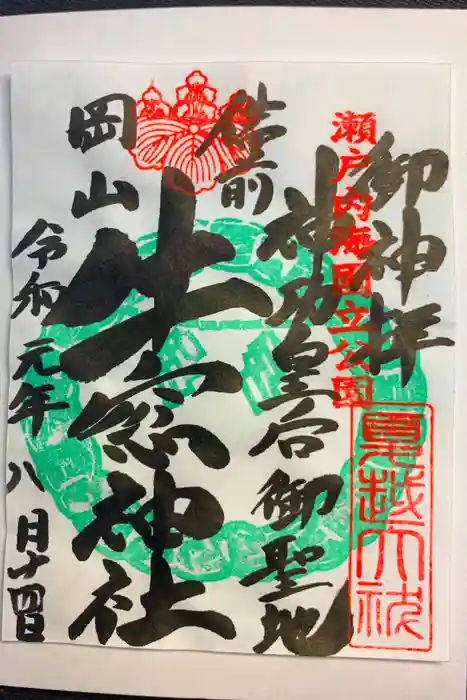 瀬戸内海国立公園
御神拝
神功皇后御聖地
備前
牛窓神社
岡山
令和元年八月十四日